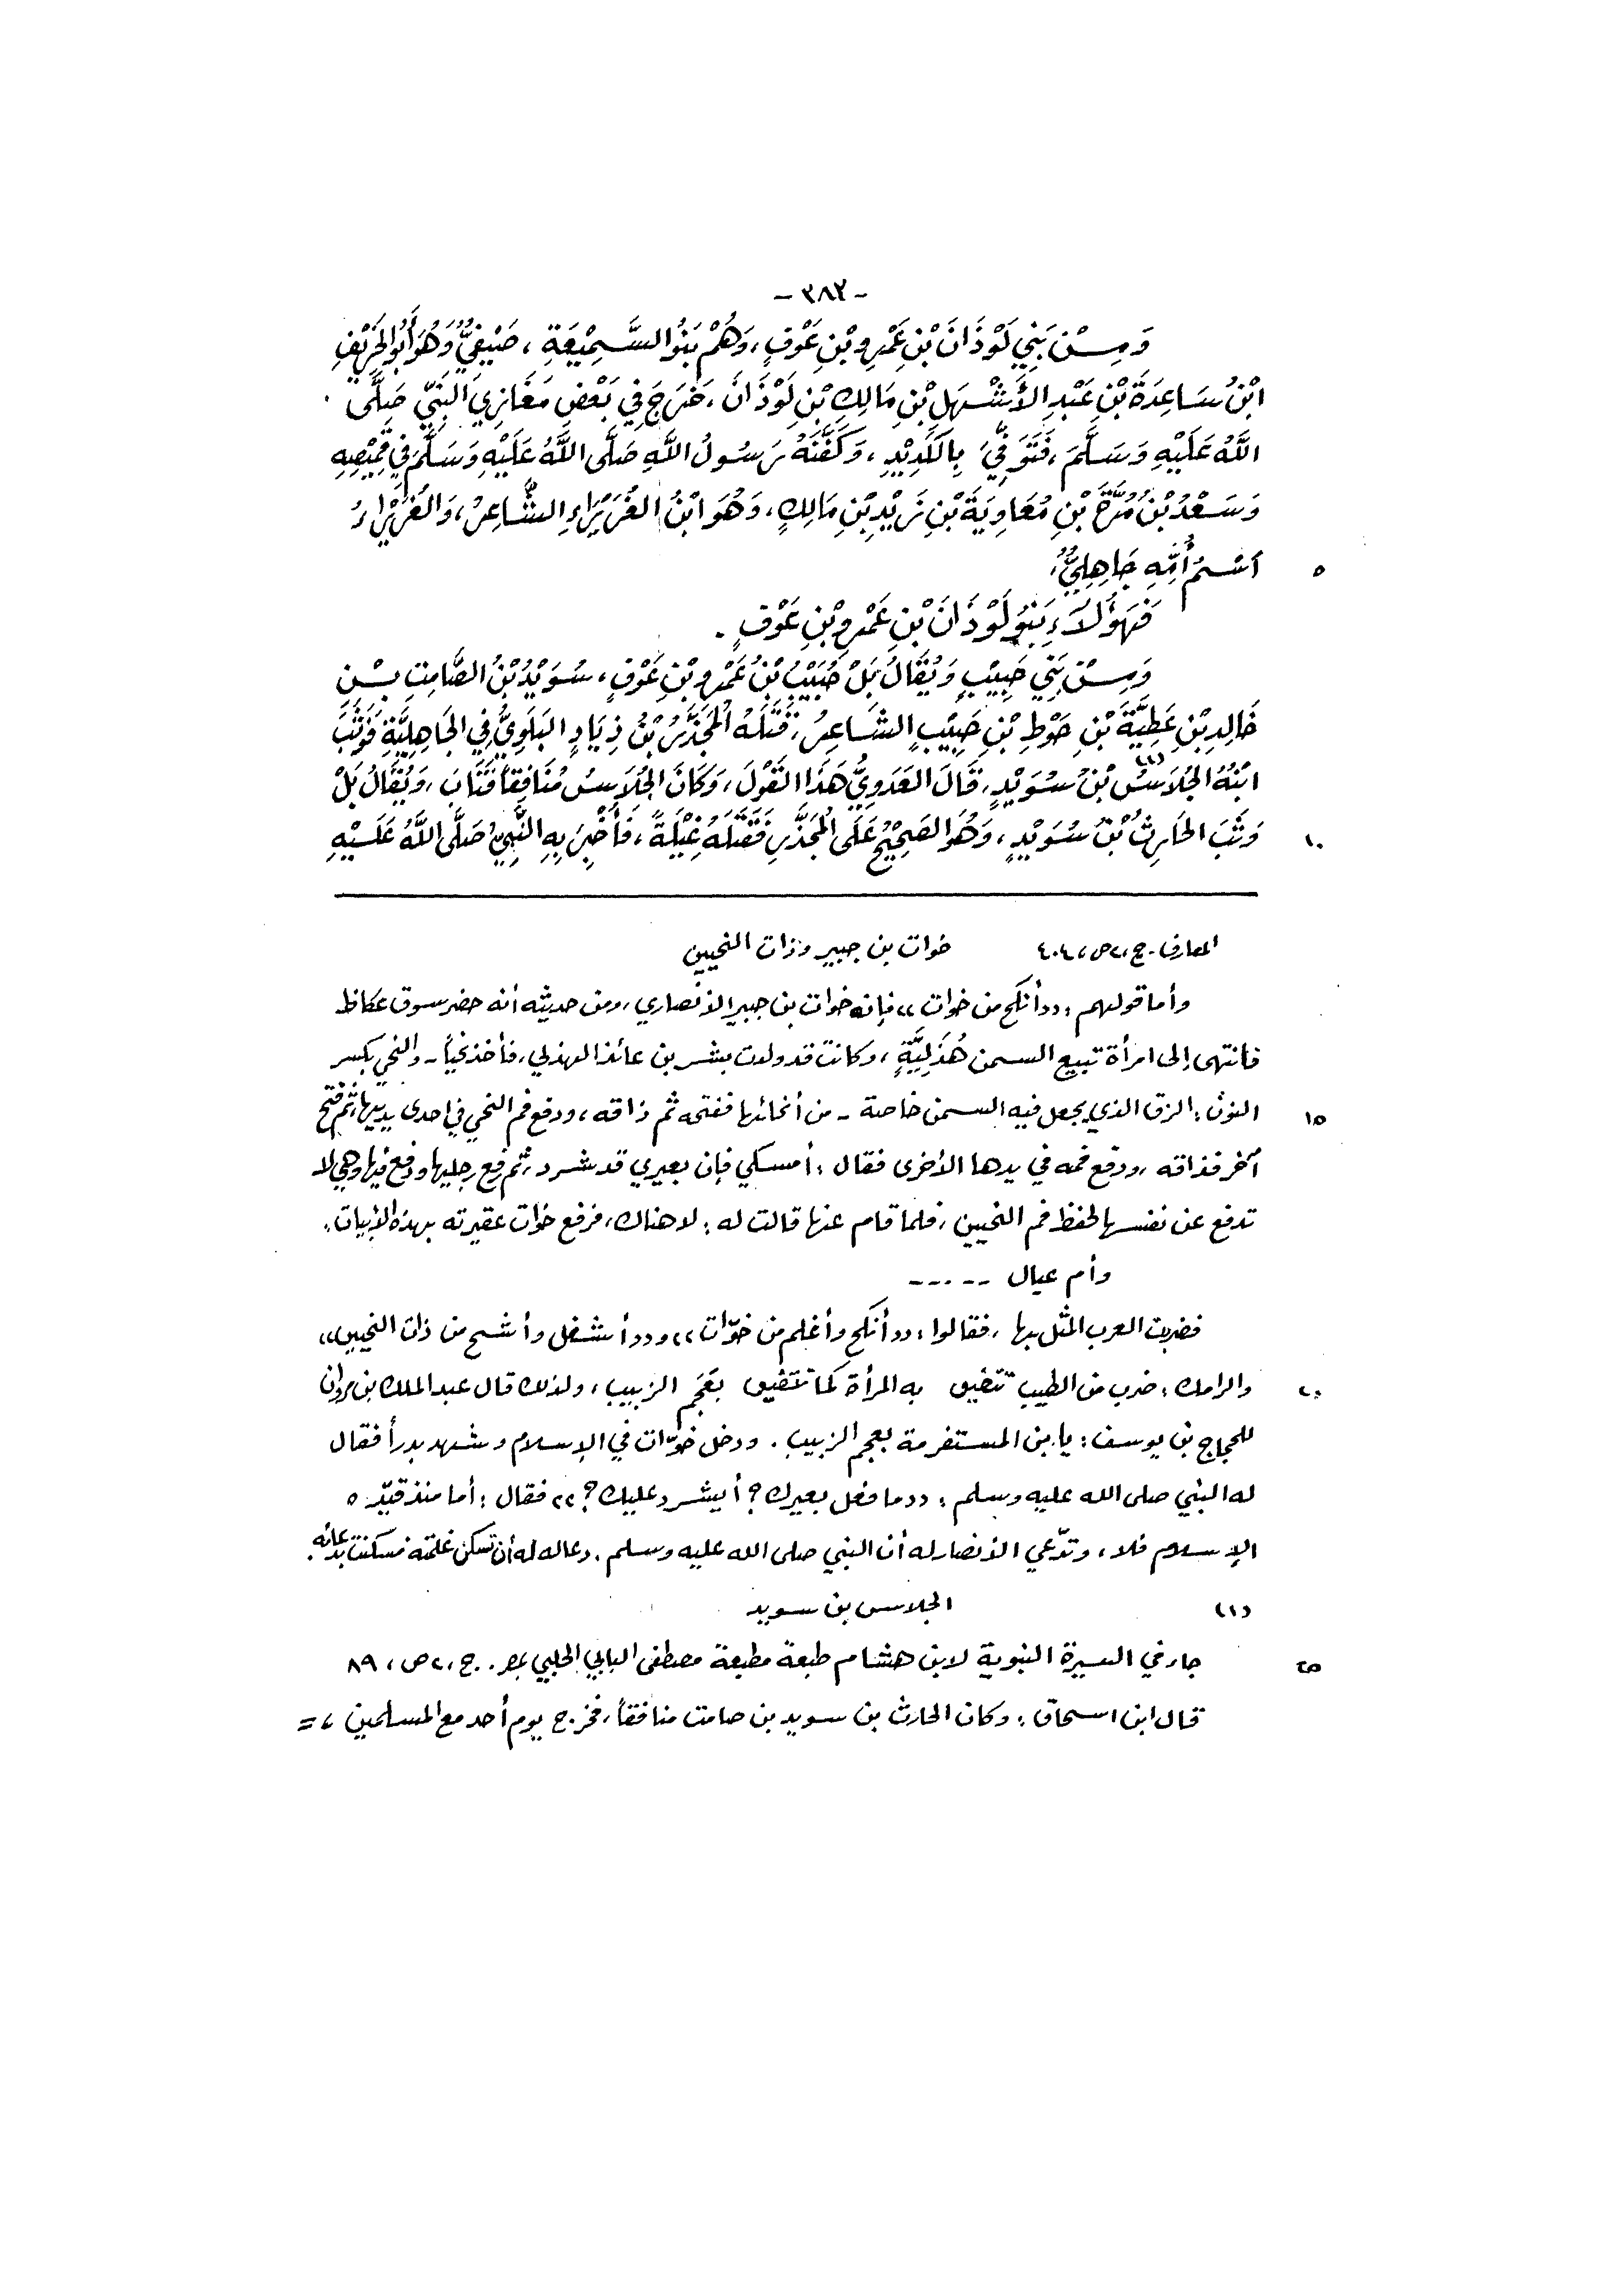 - ٣٨٢ -
وَمِنْ بَنِي لَوْذَانَ بْنِ عَمْرِو بْنِ عَوْفٍ، وَهُمْ بَنُو السَّمِيْعَةِ، صَيْفِيٌّ وَهُوَ أَبُو الخَرِيْفِ
ابْنُ سَاعِدَةَ بْنِ عَبْدِ الأَشْهَلِ بْنِ مَالِكِ بْنِ لَوْذَانَ، خَرَجَ فِي بَعْضِ مَغَازِي النَّبِيِّ صَلَّى
اللَّهُ عَلَيْهِ وَسَلَّمَ، فَتُوُفِّيَ بِالكَدِيْدِ، وَكَفَّنَهُ رَسُولُ اللَّهِ صَلَّى اللَّهُ عَلَيْهِ وَسَلَّمَ فِي قَمِيْصِهِ
وَسَعْدُ بْنُ مُرَّةَ بْنِ مُعَاوِيَةَ بْنِ زَيْدِ بْنِ مَالِكٍ، وَهُوَ ابْنُ الغُرَيْرَاءِ الشَّاعِرُ، وَالغُرَيْرَاءُ
٥ اسْمُ أُمِّهِ جَاهِلِيٌّ.
فَهَؤُلَاءِ بَنُو لَوْذَانَ بْنِ عَمْرِو بْنِ عَوْفٍ.
وَمِنْ بَنِي حَبِيْبٍ وَيُقَالُ بَلْ حُبَيْبُ بْنُ عَمْرِو بْنِ عَوْفٍ، سُوَيْدُ بْنُ الصَّامِتِ بْنِ
خَالِدِ بْنِ عَطِيَّةَ بْنِ حَوْطِ بْنِ حَبِيْبٍ الشَّاعِرُ، قَتَلَهُ المُجَذَّرُ بْنُ ذِيَادٍ البَلَوِيُّ فِي الجَاهِلِيَّةِ فَوَثَبَ
ابْنُهُ الجُلَاسُ (١) بْنُ سُوَيْدٍ، قَالَ العَدَوِيُّ هَذَا القَوْلَ، وَكَانَ الجُلَاسُ مُنَافِقاً فَتَابَ، وَيُقَالُ بَلْ
١٠ وَثَبَ الحَارِثُ بْنُ سُوَيْدٍ، وَهُوَ الصَّحِيْحُ عَلَى المُجَذَّرِ فَقَتَلَهُ غِيْلَةً، فَأُخْبِرَ بِهِ النَّبِيُّ صَلَّى اللَّهُ عَلَيْهِ
المعارف - ج، ٢، ص، ٤٠٤ خوات بن جبير وذات النحيين
وأما قولهم: ((أنكح من خوات)) فإنه خوات بن جبير الأنصاري، ومن حديثه أنه حضر سوق عكاظ
فانتهى إلى امرأة تبيع السمن هُذَلِيَّةٍ، وكانت قد ولدت بشر بن عائذ الهذلي، فأخذ نحياً - والنحي بكسر
١٥ النون: الزق الذي يجعل فيه السمن خاصة - من أنحائها ففتحه ثم ذاقه، ودفع فم النحي في إحدى يديها، ثم فتح
آخر فذاقه، ودفع فمه في يدها الأخرى فقال: أمسكي فإن بعيري قد شرد، ثم رفع رجليها ودفع فيها وهي لا
تدفع عن نفسها لحفظ فم النحيين، فلما قام عنها قالت له: لا هناك، فرفع خوات عقيرته بهذه الأبيات:
وأم عيال -----
فضربت العرب المثل بها، فقالوا: ((أنكح وأغلم من خوّات)) و((أشغل وأشح من ذات النحيين))
٢٠ والرامك: ضرب من الطيب تتضيق به المرأة كما تتضيق بعَجَم الزبيب، ولذلك قال عبد الملك بن مروان
للحجاج بن يوسف: يا بن المستفرمة بعجم الزبيب. ودخل خوّات في الإسلام وشهد بدراً فقال
له النبي صلى الله عليه وسلم: ((ما فعل بعيرك؟ أيشرد عليك؟)) فقال: أما منذ قيّده
الإسلام فلا، وتدّعي الأنصار له أن النبي صلى الله عليه وسلم. دعا له أن تسكن غلمته فسكنت بدعائه.
(١) الجلاس بن سويد
٢٥ جاء في السيرة النبوية لابن هشام طبعة مطبعة مصطفى البابي الحلبي بمصر. ج، ٢، ص، ٨٩
قال ابن اسحاق: وكان الحارث بن سويد بن صامت منافقاً، فخرج يوم أحد مع المسلمين، =